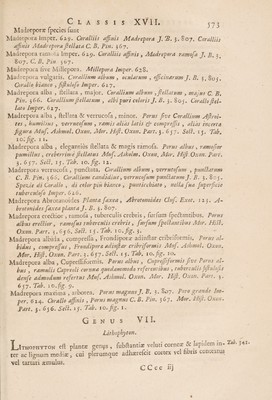 CLASSIS XVII. 573
Madrepora species sunt
Madrepora Imper. 629. Corallis affinis Madrepora J. B. 3. 807. Corallis
affinis Madrepora stellata C. B. Pin. 367.
Madrepora ramosa Imper. 629. Corallis affinis, Madrepora ramosa J. B. 3.
807. C. B. Pin. 367.
Madrepora sive Millepora. Millepora Imper. 628.
Madrepora vulgaris. Corallium album, oculatum, officinarum J. B. 3. 805.
Coralle bianco, fistuloso Imper. 627.
Madrepora alba, stellata, major. Corallium album stellatum, majus C. B.
Pin. 366. Corallium stellatum, albi puri coloris J. B. 3. 805. Coralle stel-
lato Imper. 627.
Madrepora alba, stellata & verrucosa, minor. Porus sive Corallium
humilius, verrucosum, ramis aliis latis & compressis, aliis incerta
figura Musf. Ashmol. Oxon. Mor. Hist. Oxon. Part. 3. 657. Sect. 15. Tab.
10. fig. 11.
Madrepora alba, eleganter stellata & magis ramosa. Porus albus, ramosior
pumilius, crebrerime stellatus Mus. Asholm. Oxon, Mor. Hist Oxon. Part.
3. 657. Sect. 15. Tab. 10. fig. 12.
Madrepora verrucosa, punctata. Corallium album, verrucosum, punctatum
C. B. Pin. 366. Corallium candidius, verrucosum punctatum J. B. 3. 805.
Specie di Coralle, di color piu bianco, ponticchiato, nella sua superficie
tuberculosa Imper. 626.
Madrepora Abrotanoides Planta saxea, Abrotanoides Clus. Exot. 123. A-
brotanoides saxea planta J. B. 3. 807.
Madrepora erectior, ramosa, tuberculis crebris, sursum spectantibus. Porus
albus erectior, ramosus tuberculis crebris, sursum spectantibus Mor. Hist.
Oxon. Part. 3, 656. Sect. 15. Tab. 10. fig. 3.
Madrepora albida, compressa, Frondipora adinstar cribriformis. Porus al-
bidus, compressus, Frondipora adinstar cribriformis Musf. Ashmol. Oxon.
Mor. Hist. Oxon. Part. 3. 657. Sect. 15. Tab. 10. fig. 10.
Madrepora alba, Cupressiformis. Porus albus, Cupressiformis sive Porus al-
bus, ramulis Cupressi caruna quodammodo referentibus, tuberculis fistulosis
dense admodum refertus Musf. Ashmol. Oxon. Mor. Hist. Oxon. Part. 3.
657. Tab. 10. fig. 9.
Madrepora maxima, arborea. Porus magnus J. B. 3. 807. Poro grande Im-
per. 624. Corallis affinis, Porus magnus C. B. Pin. 367. Mor. Hist. Oxon.
Part. 3. 656. Sect. 15. Tab. 10. fig. 1.
GENUS VII.
Lithophyton.
LITHOPHYTON est plantæ genus, substantiæ veluti corneæ & lapideæ in- Tab. 342.
ter ac ligneam mediæ, cui plerumque adhærescit cortex vel fibris constratus
vel tartari æmulus.
CCcc iij